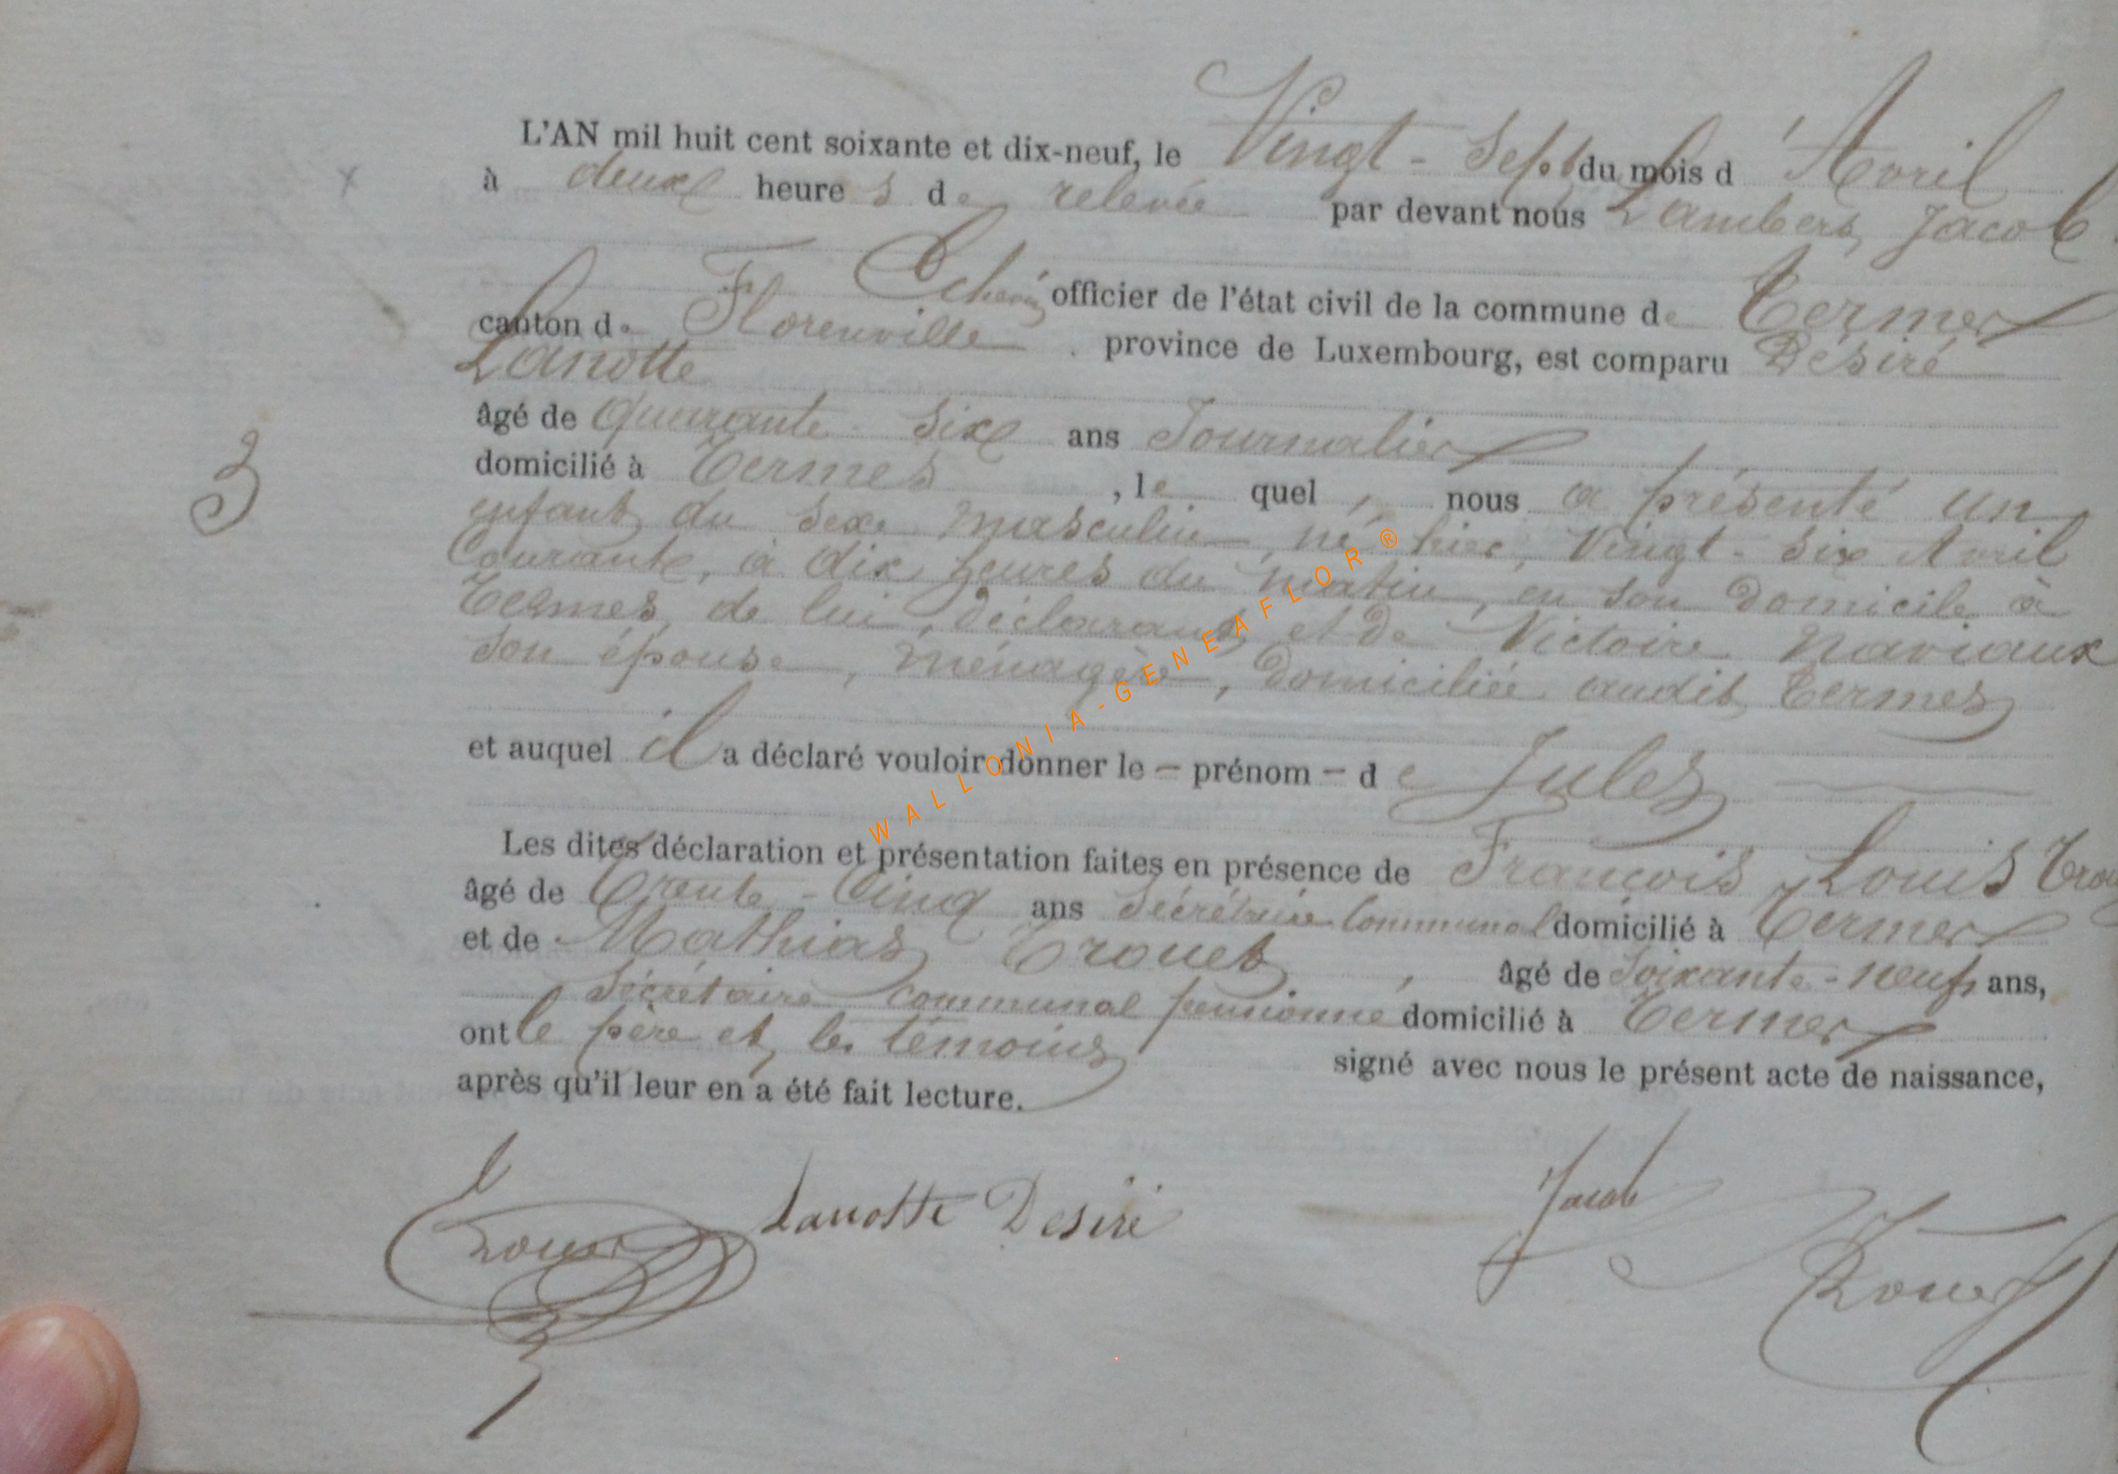 L'AN mil huit cent soixante et dix-neuf, le Vingt-Sept du mois d'Avril
à deux heures de relevée par devant nous Lambert Jacob
Echevin officier de l'état civil de la commune de Termes
canton de Florenville province de Luxembourg, est comparu Désiré
Lanotte
âgé de quarante-six ans Journalier
domicilié à Termes, lequel nous a présenté un
3
enfant du sexe masculin, né hier, Vingt-six Avril
Courant, à dix heures du matin, en son domicile à
Termes, de lui, déclarant, et de Victoire Naviaux
son épouse, ménagère, domiciliée audit Termes
et auquel il a déclaré vouloir donner le - prénom - de Jules
Les dites déclaration et présentation faites en présence de François Louis
âgé de trente-cinq ans Sécrétaire Communal domicilié à Termes
et de Mathias Trouet, âgé de soixante-neuf ans,
Sécrétaire communal pensionné domicilié à Termes
ont le père et les témoins signé avec nous le présent acte de naissance,
après qu'il leur en a été fait lecture.
Trouet Lanotte Désiré Jacob
Trouet
WALLONIA-GENEAFLOR®